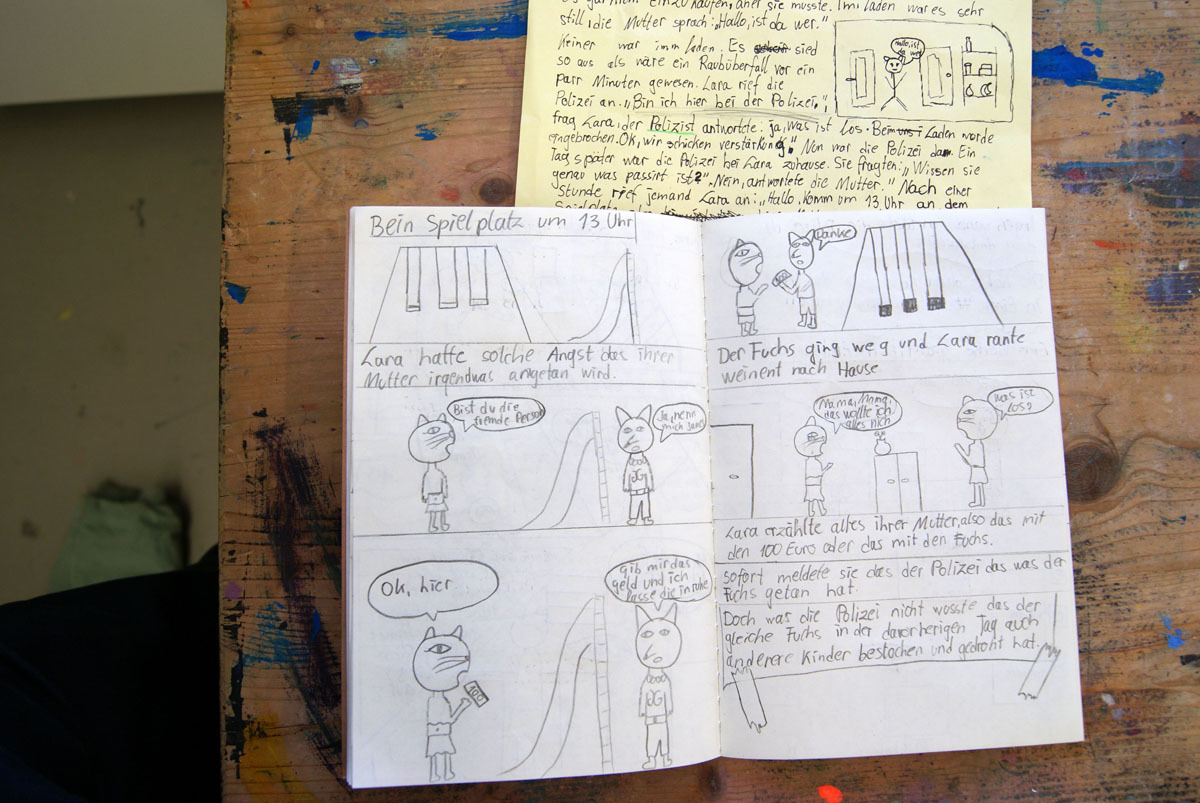 einzukaufen, aber sie musste. Im laden war es sehr
still, die Mutter sprach: „Hallo, ist da wer."
Hallo, ist
da wer
Keiner war imm laden. Es sied
so aus als wäre ein Raubüberfall vor ein
parr Minuten gewesen. Lara rief die
Polizei an. „Bin ich hier bei der Polizei,"
frag Lara, der Polizist antwortete: ja, was ist los. Beim Laden worde
eingebrochen. Ok, wir schicken verstärkung." Nun war die Polizei dam. Ein
Tag später war die Polizei bei Lara zuhause. Sie fragten: „Wissen sie
genau was passirt ist?" „Nein, antwortete die Mutter." Nach einer
Stunde rief jemand Lara an: „Hallo, komm um 13 Uhr an dem
Bein Spielplatz um 13 Uhr
Lara hatte solche Angst das ihrer
Mutter irgendwas angetan wird.
Bist du die
fremde Person
Ja, nenn
mich
Ok, hier
gib mir das
geld und ich
lasse die in ruhe
100
Danke
Der Fuchs ging weg und Lara rante
weinent nach Hause
Mama, Mama,
das wollte ich
alles nich
was ist
los?
Lara erzählte alles ihrer Mutter, also das mit
den 100 Euro oder das mit den Fuchs.
sofort meldete sie das der Polizei das was der
Fuchs getan hat.
Doch was die Polizei nicht wusste das der
gleiche Fuchs in der davorherigen Tag auch
anderere Kinder bestochen und gedroht hat.